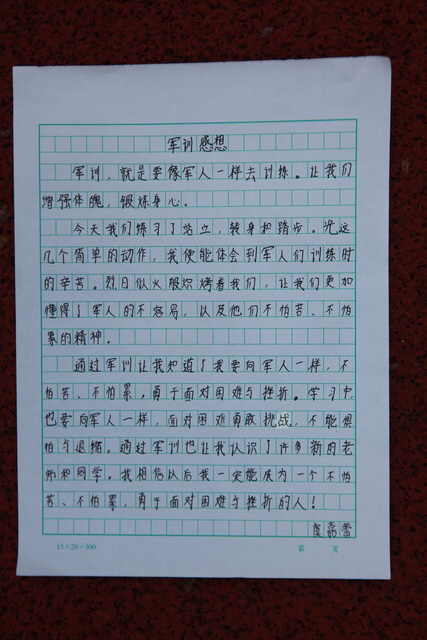 军训感想
军训，就是要像军人一样去训练。让我们
增强体魄，锻炼身心。
今天我们练习了站立，转身和踏步。光这
几个简单的动作，我便能体会到军人们训练时
的辛苦。烈日似火般炽烤着我们，让我们更加
懂得了军人的不容易，以及他们不怕苦、不怕
累的精神。
通过军训让我知道了我要向军人一样，不
怕苦、不怕累，勇于面对困难与挫折。学习中
也要向军人一样，面对困难勇敢挑战，不能惧
怕与退缩。通过军训也让我认识了许多新的老
师和同学。我相信以后我一定能成为一个不怕
苦、不怕累，勇于面对困难与挫折的人！
15×20=300 第 页